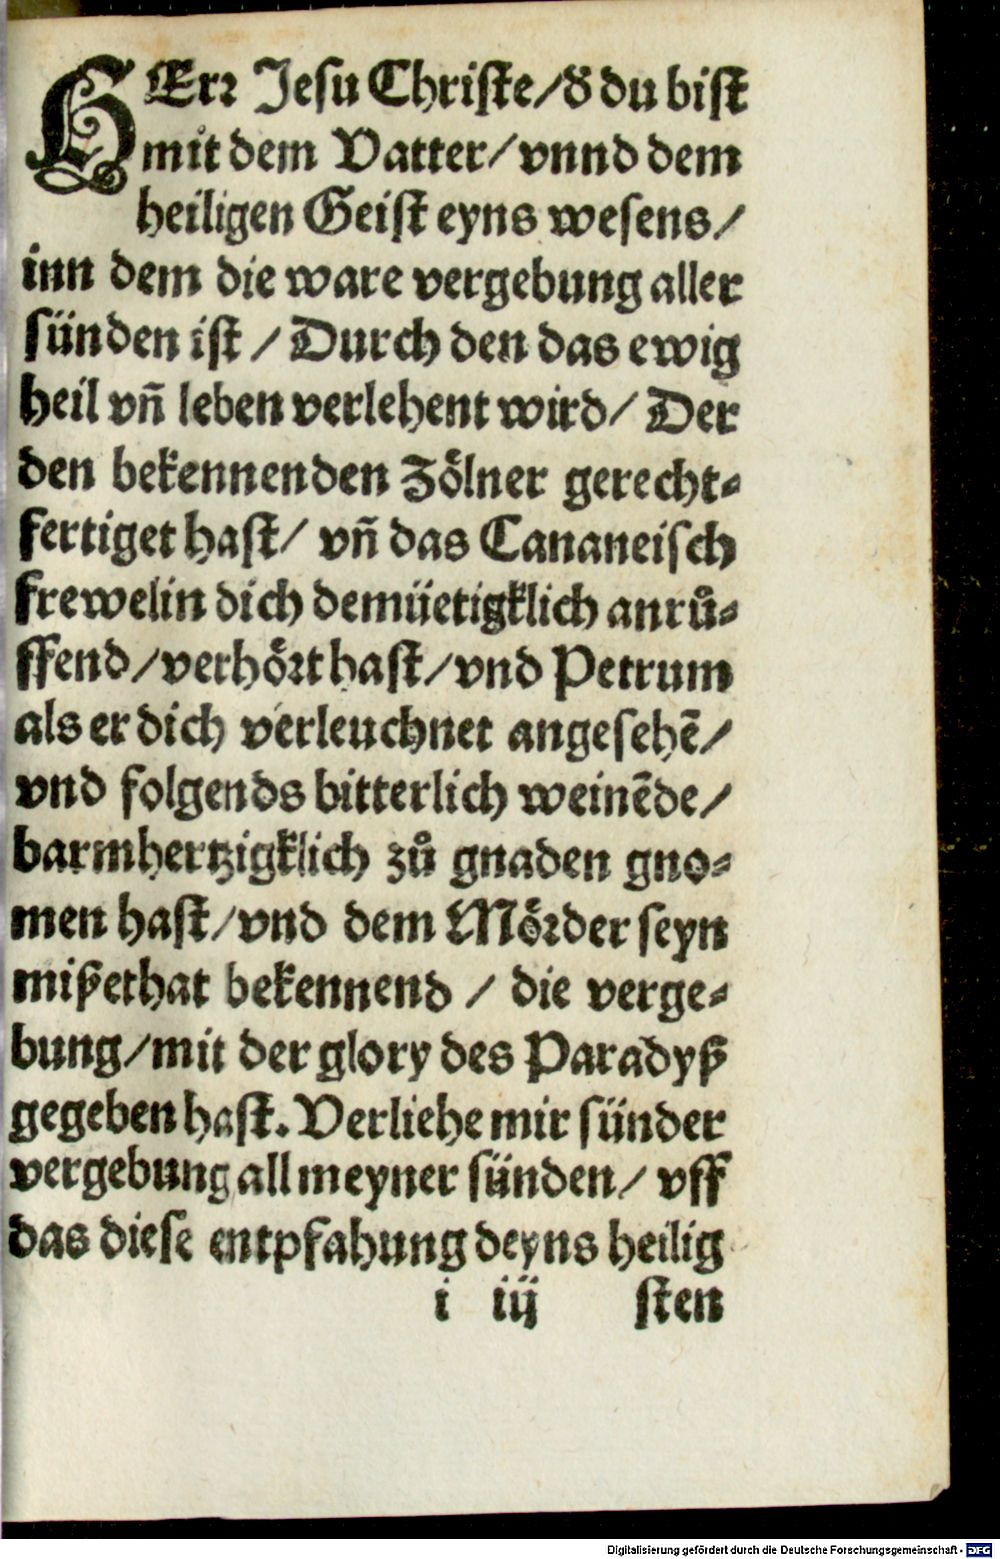 HErr Jesu Christe/d̕ du bist
mit dem Vatter/vnnd dem
heiligen Geist eyns wesens/
inn dem die ware vergebung aller
sünden ist / Durch den das ewig
heil vñ leben verlehent wird/ Der
den bekennenden Zoͤlner gerecht⸗
fertiget hast/ vñ das Cananeisch
frewelin dich demüetigklich anruͦ⸗
ffend/verhoͤrt hast/vnd Petrum
als er dich verleuchnet angesehẽ/
vnd folgends bitterlich weinẽde/
barmhertzigklich zuͦ gnaden gno⸗
men hast/vnd dem Moͤrder seyn
mißethat bekennend / die verge⸗
bung/mit der glory des Paradyß
gegeben hast. Verliehe mir sünder
vergebung all meyner sünden/ vff
das diese entpfahung deyns heilig
i iij sten
Digitalisierung gefördert durch die Deutsche Forschungsgemeinschaft - DFG